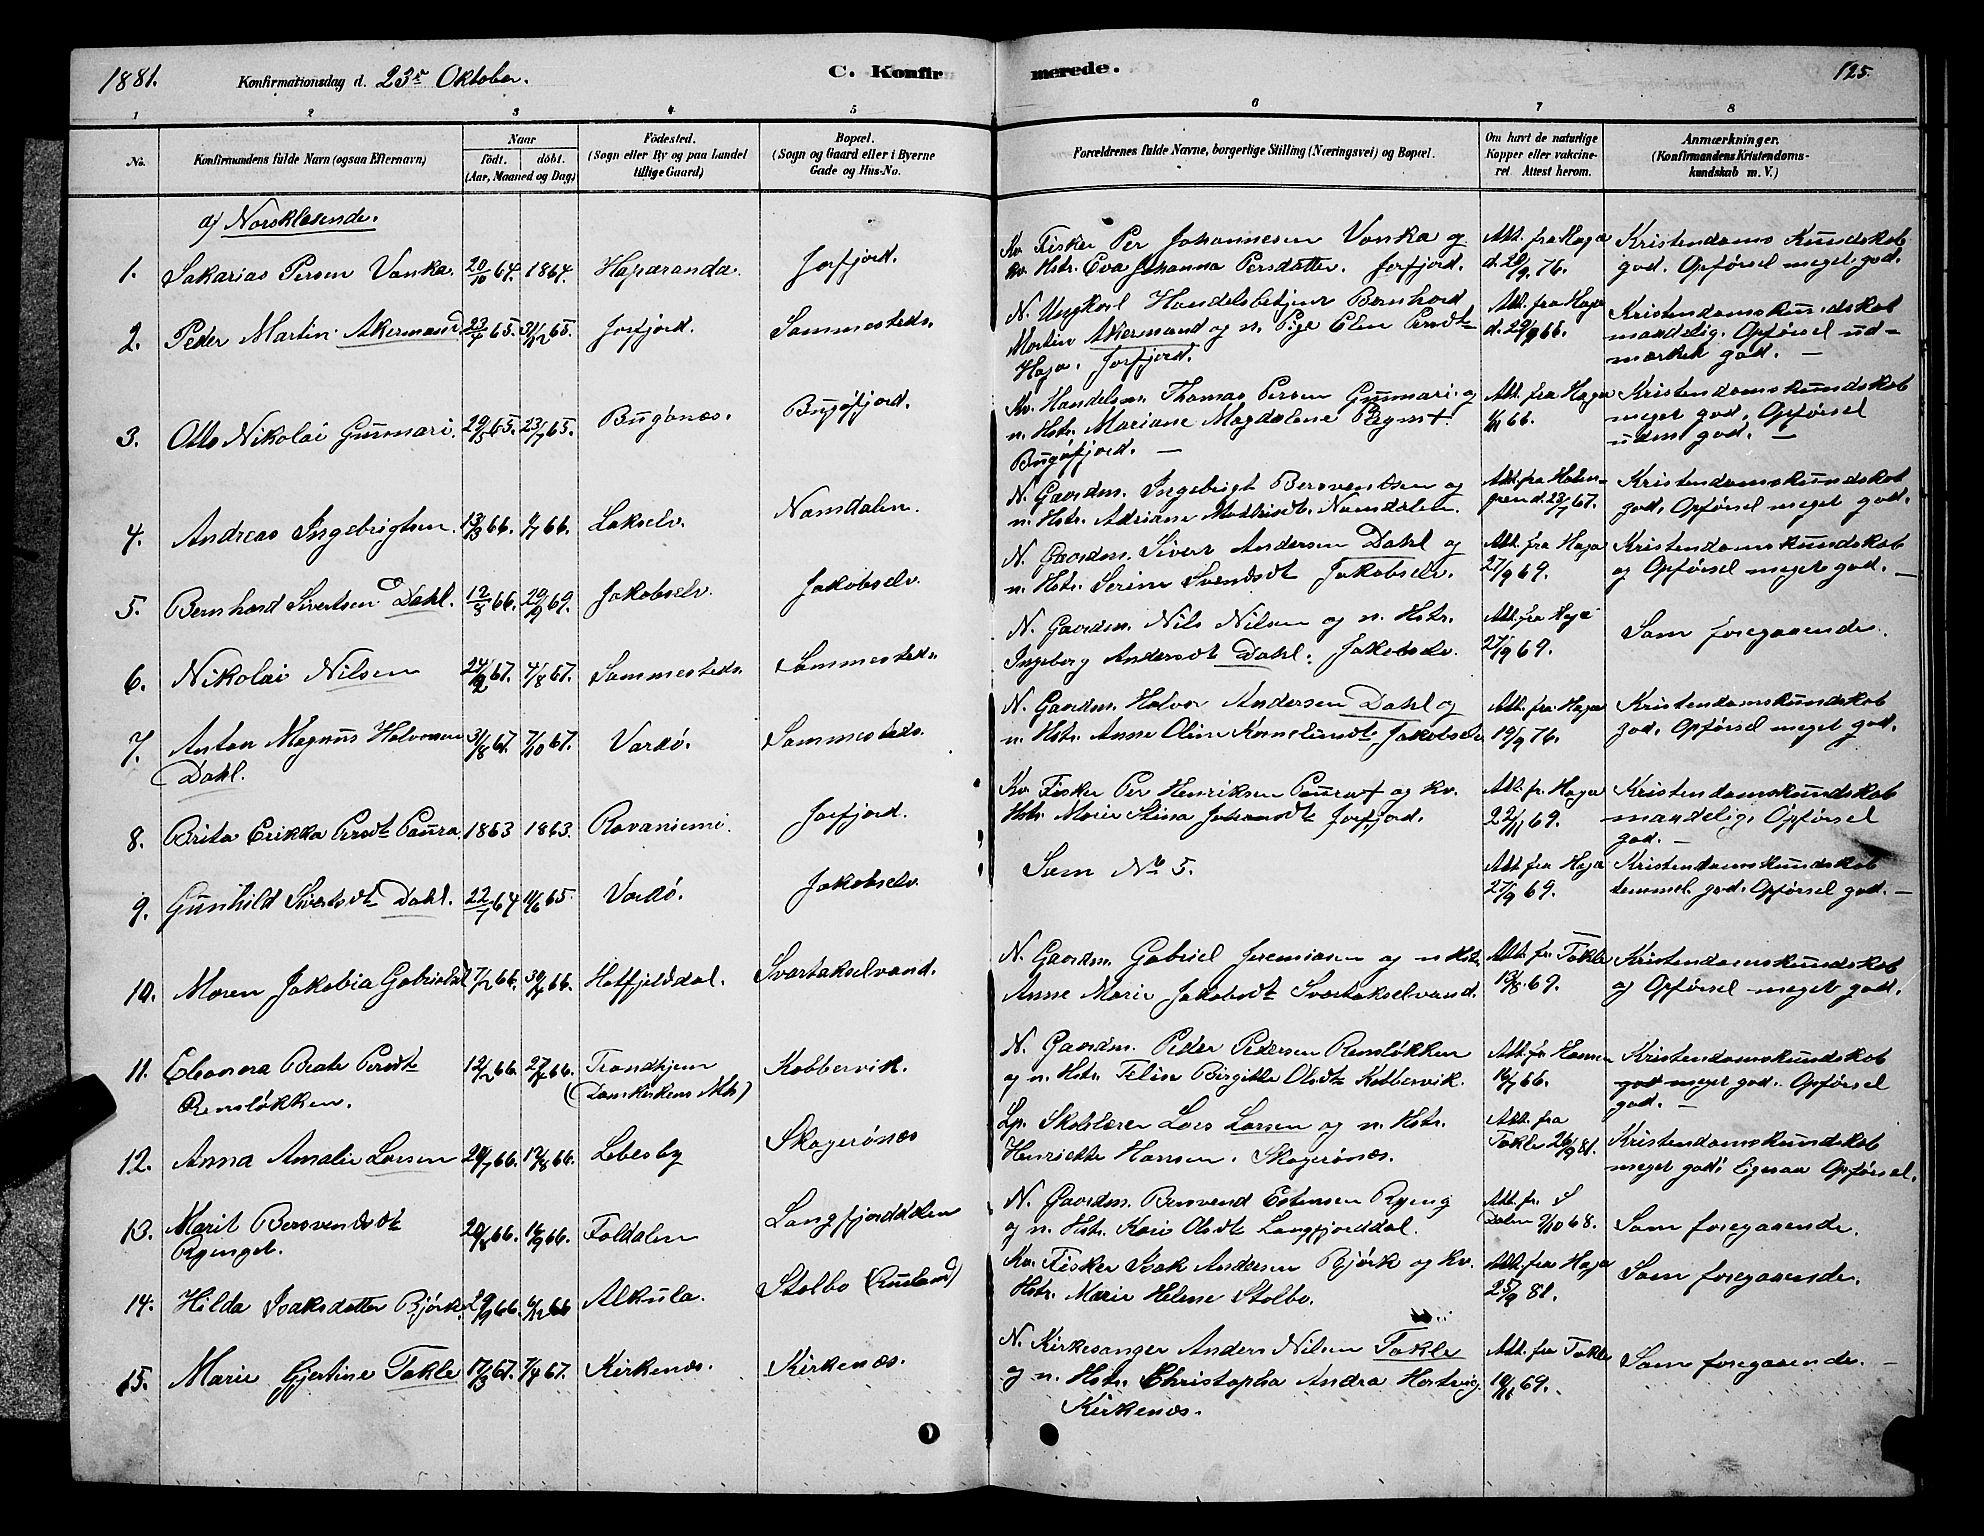 1881. Konfirmationsdag d. 23de Oktober. C. Konfir merede. 125.
1 2 3 4 5 6 7 8
No. Konfirmandens fulde Navn (ogsaa Efternavn) Naar født. døbt. (Aar, Maaned og Dag) Fødested. (Sogn eller By og paa Landet tillige Gaard) Bopæl. (Sogn og Gaard eller i Byerne Gade og Hus-No. Forældrenes fulde Navne, borgerlige Stilling (Næringsvei) og Bopæl. Om havt de naturlige Kopper eller vakcineret. Attest herom. Anmærkninger. (Konfirmandens Kristendomskundskab m. V.)
a) Norsklæsende.
1. Sakarias Persen Vanka. 20/10 64. 1864. Haparanda. Jarfjord. Kv. Fisker Per Johannesen Vanka og
kv. Hstr. Eva Johanna Persdatter. Jarfjord. Att. fra Haga
d. 20/9 76. Kristendoms Kundskab
god. Opførsel meget god.
2. Peder Martin Akermand 23/4 65. 31/12 65. Jarfjord. Sammesteds. N. Ungkarl Handelsbetjent Bernhard
Martin Akermand og n. Pige Elen Ersdt
Haga. Jarfjord. Att. fra Haga
d. 29/9 66. Kristendomskundskab
maadelig. Opførsel ud-
mærket god. —
3. Otto Nikolai Gunnari. 29/5 65. 23/7 65. Bugønæs. Bugøfjord. Kv. Handelsm. Thomas Persen Gunnari og
n. Hstr. Mariane Magdalene
Bugøfjord. — Att. fra Haga
66. Kristendomskundskab
meget god. Opførsel
udm. god. —
4. Andreas Ingebrigtsen. 13/3 66. 1/7 66. Lakselv. Namdalen. N. Gaardm. Ingebrigt Bersventsen og
n. Hstr. Adriane Namdalen. Att. fra
67. Kristendomskundskab
god. Opførsel meget god.
5. Bernhard Sivertsen Dahl. 12/5 66. 29/9 69. Jakobselv. Jakobselv. N. Gaardm. Sivert Andersen Dahl og
n. Hstr. Serine Svendsdt Jakobselv. Att. fra Haga
27/9 69. Kristendomskundskab
og Opførsel meget god. —
6. Nikolai Nilsen 24/2 67. 4/8 67. Sammesteds. Sammesteds. N. Gaardm. Nils Nilsen og n. Hstr.
Ingeborg Andersdt Dahl. Jakobselv. Att. fra Haga
27/9 69. Som foregaaende.
7. Anton Magnus Halvorsen
Dahl. 31/8 67. 7/10 67. Vardø. Sammesteds. N. Gaardm. Halvor Andersen Dahl og
n. Hstr. Anne Oline Jakobselv Att. fra Haga
19/9 76. Kristendomskundskab
god. Opførsel meget god.
8. Brita Erikka Persdt Paura. 1863 1863. Rovaniemi. Jarfjord. Kv. Fisker Per Henriksen Paura og kv.
Hstr. Maria Stina Johansdt Jarfjord. Att. fr. Haga
69. Kristendomskundskab
maadelig. Opførsel
god. —
9. Gunhild Sivertsdt Dahl. 22/1 64 11/6 65. Vardø. Jakobselv. Som No 5. Att. fra Haga
27/9 69. Kristendomskundskab
temmel. god. Opførsel god. —
10. Maren Jakobia Gabrielsdt 7/2 66. 66. Hatfjelddal. Svartakselvand. N. Gaardm. Gabriel Jeremiasen og n Hstr.
Anne Marie Jakobsdt Svartakselvand. Att. fr. Takle
13/8. 69. Kristendomskundskab
og Opførsel meget god.
11. Eleonora Beate Persdt
Rensløkken. 12/2 66. 66. Trondhjem
(Domkirkens Mh) Kobbervik. N. Gaardm. Peder Pedersen Rensløkken
og n. Hstr. Birgitte Olsdt Kobbervik. Att. fr. Hansen
66. Kristendomskundskab
god meget god. Opførsel
god. —
12. Anna Amalie Larsen 66. 66. Lebesby Skogerønæs Lp. Skolelærer Lars Larsen og n. Hstr.
Henriette Hansen. Skogerønæs. Att. fra
Takle 26/9 81. Kristendomskundskab
meget god; Ogsaa Opførsel.
13. Marit Bersvendsdt
Ryenget. 66. 66. Foldalen Langfjorddalen N. Gaardm. Bersvend Estensen Ryeng
og n. Hstr. Kari Olsdt Langfjorddal. Att. fr.
Dalen 9/10 68. Som foregaaende.
14. Hilda Isaksdatter Bjørk. 66. 66 Alkula. Stolbo (Rusland) Kv. Fisker Isak Andersen Bjørk og kv.
Hstr. Marie Helene Stolbo. Att. fra Haga
25/9 81. Som foregaaende.
15. Marie Gjertine Takle 17/3 67. 7/4 67. Kirkenæs. Kirkenæs. N. Kirkesanger Anders Nilsen Takle
og n. Hstr. Christopha Andra Hartvig.
Kirkenæs. Att. fra Takle
69. Som foregaaende. —